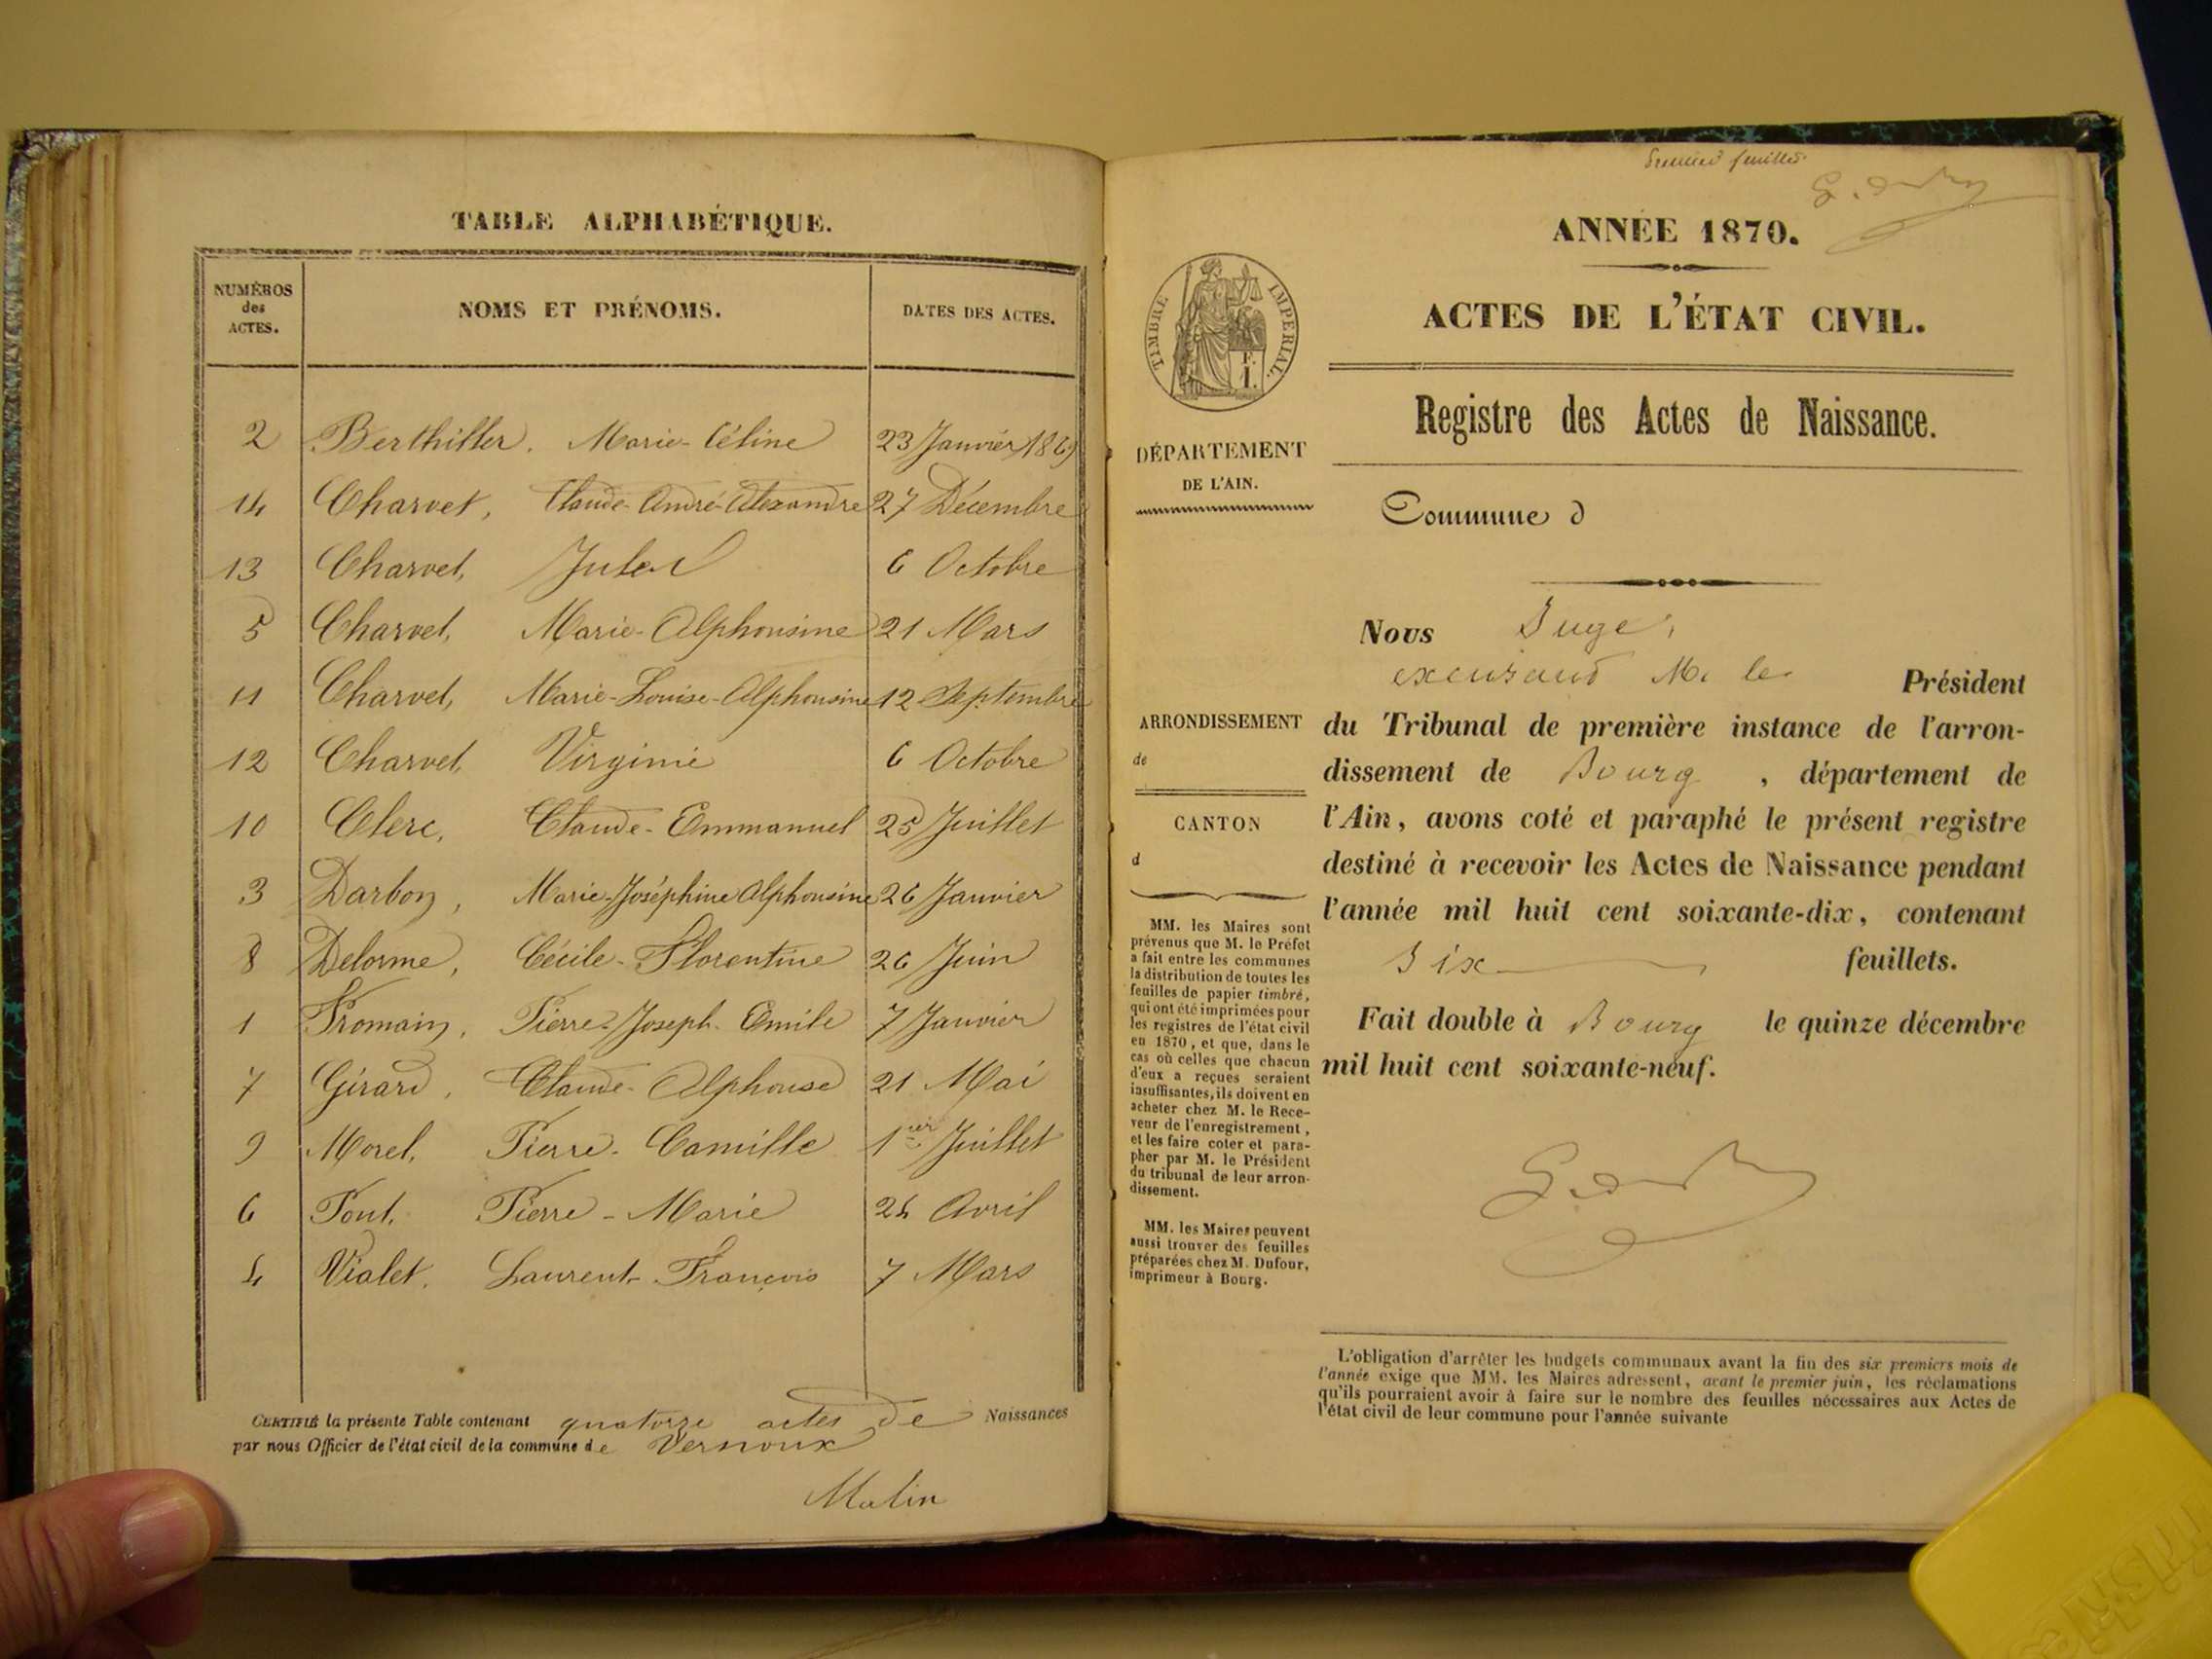 TABLE ALPHABÉTIQUE.
NUMÉROS
des
ACTES.
NOMS ET PRÉNOMS.
DATES DES ACTES.
2 Berthiller. Marie-Céline 23 Janvier 1869
14 Charvet, Claude-André-Alexandre 27 Décembre
13 Charvet, Jules 6 Octobre
5 Charvet, Marie-Alphonsine 21 Mars
11 Charvet, Marie-Louise-Alphonsine 12 Septembre
12 Charvet, Virginie 6 Octobre
10 Clerc, Claude-Emmanuel 25 Juillet
3 Darbon, Marie-Joséphine Alphonsine 26 Janvier
8 Delorme, Cécile-Florentine 26 Juin
1 Fromain, Pierre-Joseph-Emile 7 Janvier
7 Girard, Claude-Alphonse 21 Mai
9 Morel, Pierre-Camille 1er Juillet
6 Pont, Pierre-Marie 24 Avril
4 Vialet. Laurent-François 7 Mars
CERTIFIÉ la présente Table contenant quatorze actes de Naissances
par nous Officier de l'état civil de la commune de Vernoux
Malin
Premier feuillet
ANNÉE 1870.
ACTES DE L'ÉTAT CIVIL.
TIMBRE IMPERIAL.
Registre des Actes de Naissance.
DÉPARTEMENT
DE L'AIN.
Commune d
Nous Juge,
M. le Président
ARRONDISSEMENT
de
CANTON
d
du Tribunal de première instance de l'arron-
dissement de Bourg, département de
l'Ain, avons coté et paraphé le présent registre
destiné à recevoir les Actes de Naissance pendant
l'année mil huit cent soixante-dix, contenant
Six feuillets.
Fait double à Bourg le quinze décembre
mil huit cent soixante-neuf.
MM. les Maires sont
prévenus que M. le Préfet
a fait entre les communes
la distribution de toutes les
feuilles de papier timbré,
qui ont été imprimées pour
les registres de l'état civil
en 1870, et que, dans le
cas où celles que chacun
d'eux a reçues seraient
insuffisantes, ils doivent en
acheter chez M. le Rece-
veur de l'enregistrement,
et les faire coter et para-
pher par M. le Président
du tribunal de leur arron-
dissement.
MM. les Maires peuvent
aussi trouver des feuilles
préparées chez M. Dufour,
imprimeur à Bourg.
L'obligation d'arrêter les budgets communaux avant la fin des six premiers mois de
l'année exige que MM. les Maires adressent, avant le premier juin, les réclamations
qu'ils pourraient avoir à faire sur le nombre des feuilles nécessaires aux Actes de
l'état civil de leur commune pour l'année suivante